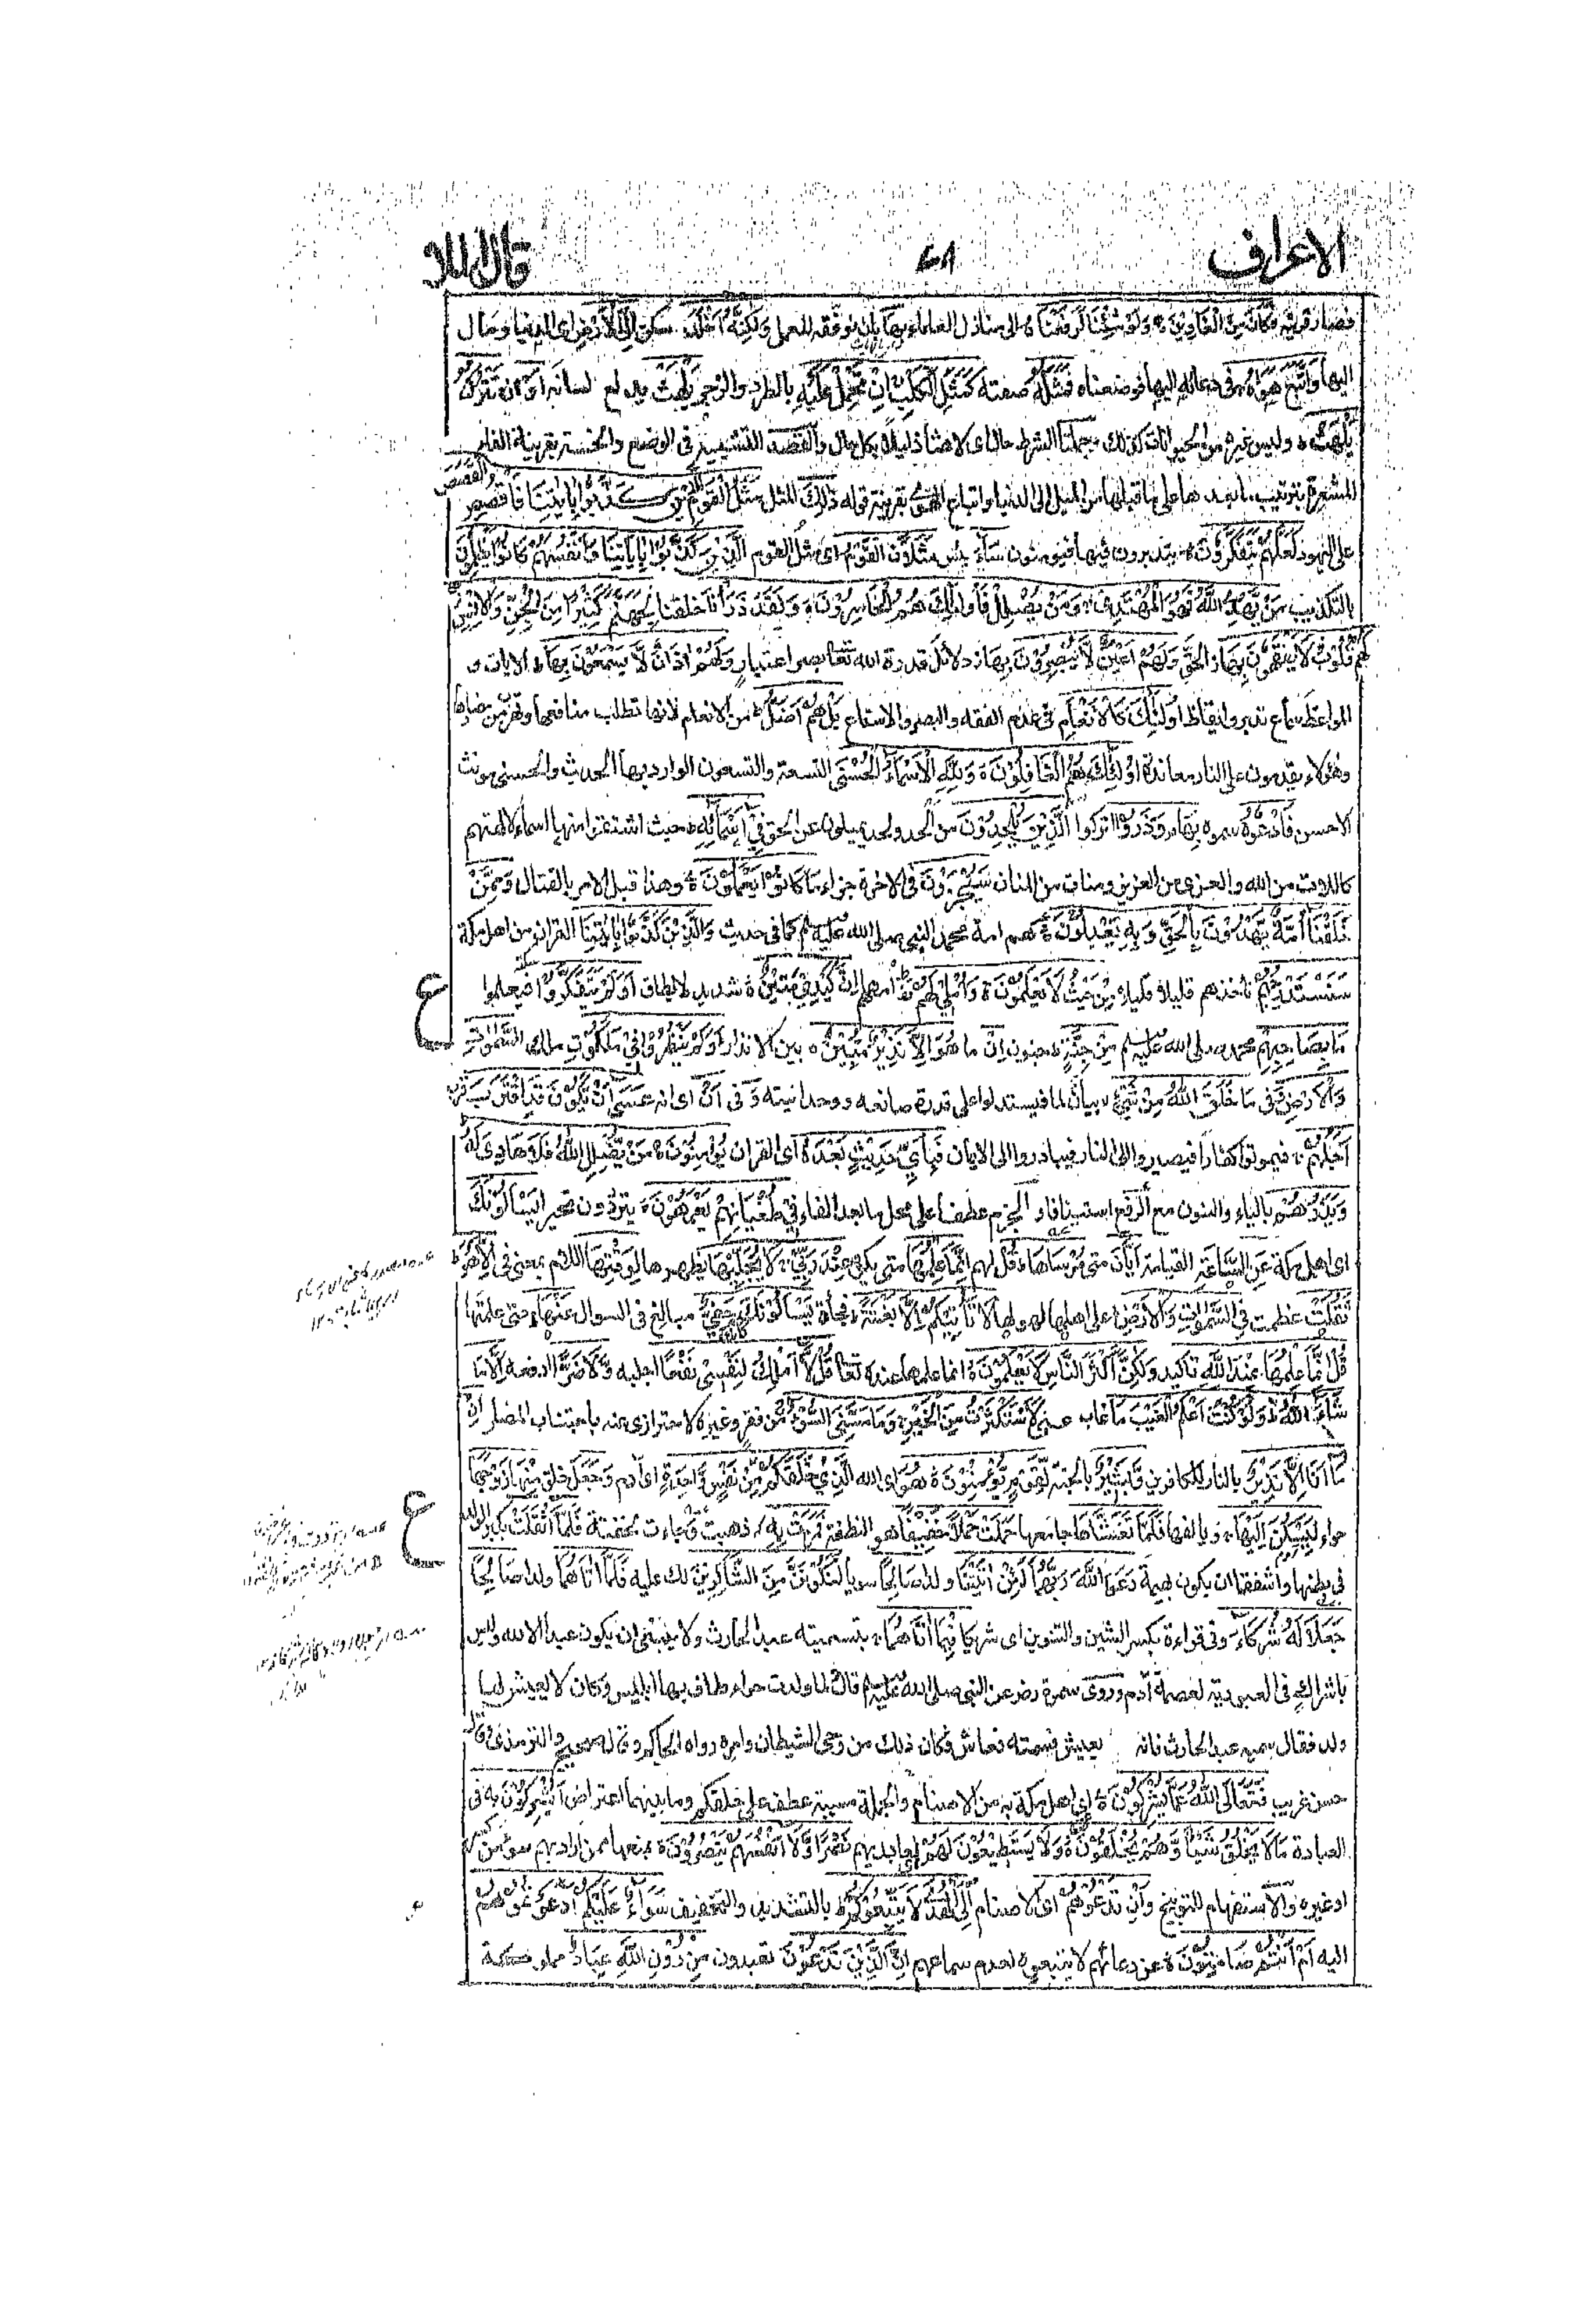 الاعراف ٤٨ قال الملا
فصار قرينه فَكَانَ مِنَ الْغَاوِيْنَ ۝ وَلَوْ شِئْنَا لَرَفَعْنَاهُ الى منازل العلماء بِهَا بان نوفقه للعمل وَلٰكِنَّهٗ اَخْلَدَ سكن اِلَى الْاَرْضِ اى الدنيا ومال
اليها وَاتَّبَعَ هَوَاهُ فى دعائه اليها فوضعناه فَمَثَلُهٗ صفته كَمَثَلِ الْكَلْبِ اِنْ تَحْمِلْ عَلَيْهِ بالطرد والزجر يَلْهَثْ يدلع لسانه اَوْ ان تَتْرُكْهُ
يَلْهَثْ ؕ وليس غيره من الحيوانات كذلك وجملتا الشرط حال اى لاهثا ذليلا بكل حال والقصد التشبيه فى الوضع والخسة بقرينة الفاء
المشعرة بترتيب ما بعدها على ما قبلها من الميل الى الدنيا واتباع الهوى بقرينة قوله ذٰلِكَ المثل مَثَلُ الْقَوْمِ الَّذِيْنَ كَذَّبُوْا بِاٰيٰتِنَا فَاقْصُصِ الْقَصَصَ
على اليهود لَعَلَّهُمْ يَتَفَكَّرُوْنَ ۝ يتدبرون فيها فيؤمنون سَآءَ بئس مَثَلًا ۨ الْقَوْمُ اى مثل القوم الَّذِيْنَ كَذَّبُوْا بِاٰيَاتِنَا وَاَنْفُسَهُمْ كَانُوْا يَظْلِمُوْنَ
بالتكذيب مَنْ يَّهْدِ اللّٰهُ فَهُوَ الْمُهْتَدِيْ ۚ وَمَنْ يُضْلِلْ فَاُولٰٓئِكَ هُمُ الْخَاسِرُوْنَ ۝ وَلَقَدْ ذَرَاْنَا خلقنا لِجَهَنَّمَ كَثِيْرًا مِّنَ الْجِنِّ وَالْاِنْسِ
لَهُمْ قُلُوْبٌ لَّا يَفْقَهُوْنَ بِهَا ز الحق وَلَهُمْ اَعْيُنٌ لَّا يُبْصِرُوْنَ بِهَا ز دلائل قدرة الله تعا بصر اعتبار وَلَهُمْ اٰذَانٌ لَّا يَسْمَعُوْنَ بِهَا ؕ الايات و
المواعظ سماع تدبر واتعاظ اُولٰٓئِكَ كَالْاَنْعَامِ فى عدم الفقه والبصر والاستماع بَلْ هُمْ اَضَلُّ ؕ من الانعام لانها تطلب منافعها وتهرب من مضارها
وهؤلاء يقدمون على النار معاندة اُولٰٓئِكَ هُمُ الْغَافِلُوْنَ ۝ وَلِلّٰهِ الْاَسْمَآءُ الْحُسْنٰى التسعة والتسعون الوارد بها الحديث والحسنى مونث
الاحسن فَادْعُوْهُ سموه بِهَا ص وَذَرُوا اتركوا الَّذِيْنَ يُلْحِدُوْنَ من الحد ولحد يميلون عن الحق فِيْ اَسْمَآئِهٖ ؕ حيث اشتقوا منها اسماء لالهتهم
كاللات من الله والعزى من العزيز ومنات من المنان سَيُجْزَوْنَ فى الاخرة جزاء مَا كَانُوْا يَعْمَلُوْنَ ۝ وهذا قبل الامر بالقتال وَمِمَّنْ
خَلَقْنَا اُمَّةٌ يَّهْدُوْنَ بِالْحَقِّ وَبِهٖ يَعْدِلُوْنَ ۝ هم امة محمد النبى صلى الله عليه وسلم كما فى حديث وَالَّذِيْنَ كَذَّبُوْا بِاٰيٰتِنَا القران من اهل مكة
سَنَسْتَدْرِجُهُمْ ناخذهم قليلا قليلا مِّنْ حَيْثُ لَا يَعْلَمُوْنَ ۝ وَاُمْلِيْ لَهُمْ قف امهلهم اِنَّ كَيْدِيْ مَتِيْنٌ ۝ شديد لا يطاق اَوَلَمْ يَتَفَكَّرُوْا فيعلموا
ع
مَا بِصَاحِبِهِمْ محمد صلى الله عليه وسلم مِّنْ جِنَّةٍ ؕ جنون اِنْ ما هُوَ اِلَّا نَذِيْرٌ مُّبِيْنٌ ۝ بين الانذار اَوَلَمْ يَنْظُرُوْا فِيْ مَلَكُوْتِ ملك السَّمٰوٰتِ
وَالْاَرْضِ وَ فى مَا خَلَقَ اللّٰهُ مِنْ شَيْءٍ بيان لما فيستدلوا على قدرة صانعه ووحدانيته وَ فى اَنْ اى انه عَسٰى اَنْ يَّكُوْنَ قَدِ اقْتَرَبَ قرب
اَجَلُهُمْ ۚ فيموتوا كفارا فيصيروا الى النار فيبادروا الى الايمان فَبِاَيِّ حَدِيْثٍ بَعْدَهٗ اى القران يُؤْمِنُوْنَ ۝ مَنْ يُّضْلِلِ اللّٰهُ فَلَا هَادِيَ لَهٗ
وَيَذَرُهُمْ بالياء والنون مع الرفع استينافا والجزم عطفا على محل ما بعد الفاء فِيْ طُغْيَانِهِمْ يَعْمَهُوْنَ ۝ يترددون تحيرا يَسْاَلُوْنَكَ
اى اهل مكة عَنِ السَّاعَةِ القيامة اَيَّانَ متى مُرْسَاهَا ؕ قُلْ لهم اِنَّمَا عِلْمُهَا متى يكون عِنْدَ رَبِّيْ ۚ لَا يُجَلِّيْهَا يظهرها لِوَقْتِهَا اللام بمعنى فى اِلَّا هُوَ
ثَقُلَتْ عظمت فِي السَّمٰوٰتِ وَالْاَرْضِ ؕ على اهلها لهولها لَا تَاْتِيْكُمْ اِلَّا بَغْتَةً ؕ فجأة يَسْاَلُوْنَكَ كَاَنَّكَ حَفِيٌّ مبالغ فى السوال عَنْهَا ؕ حتى علمتها
قُلْ اِنَّمَا عِلْمُهَا عِنْدَ اللّٰهِ تاكيد وَلٰكِنَّ اَكْثَرَ النَّاسِ لَا يَعْلَمُوْنَ ۝ انما علمها عنده تعا قُلْ لَّا اَمْلِكُ لِنَفْسِيْ نَفْعًا اجلبه وَّلَا ضَرًّا ادفعه اِلَّا مَا
شَآءَ اللّٰهُ ؕ وَلَوْ كُنْتُ اَعْلَمُ الْغَيْبَ ما غاب عنى لَاسْتَكْثَرْتُ مِنَ الْخَيْرِ ۚ وَمَا مَسَّنِيَ السُّوْٓءُ من فقر وغيره لاحترازى عنه باجتناب المضار اِنْ
مَا اَنَا اِلَّا نَذِيْرٌ بالنار للكافرين وَّبَشِيْرٌ بالجنة لِّقَوْمٍ يُّؤْمِنُوْنَ ۝ هُوَ اى الله الَّذِيْ خَلَقَكُمْ مِّنْ نَّفْسٍ وَّاحِدَةٍ اى آدم وَّجَعَلَ خلق مِنْهَا زَوْجَهَا
ع
حواء لِيَسْكُنَ اِلَيْهَا ۚ ويالفها فَلَمَّا تَغَشّٰهَا جامعها حَمَلَتْ حَمْلًا خَفِيْفًا هو النطفة فَمَرَّتْ بِهٖ ۚ ذهبت وجاءت لخفته فَلَمَّا اَثْقَلَتْ بكبر الولد
فى بطنها واشفقا ان يكون بهيمة دَعَوَا اللّٰهَ رَبَّهُمَا لَئِنْ اٰتَيْتَنَا ولدا صَالِحًا سويا لَّنَكُوْنَنَّ مِنَ الشَّاكِرِيْنَ لك عليه فَلَمَّا اٰتَاهُمَا ولدا صَالِحًا
جَعَلَا لَهٗ شُرَكَآءَ وفى قراءة بكسر الشين والتنوين اى شريكا فِيْمَا اٰتَاهُمَا ۚ بتسميته عبد الحارث ولا ينبغى ان يكون عبدا الا لله وليس
باشراك فى العبودية لعصمة آدم وروى سمرة رضـ عن النبى صلى الله عليه وسلم قال لما ولدت حواء طاف بها ابليس وكان لا يعيش لها
ولد فقال سميه عبد الحارث فانه يعيش فسمته فعاش فكان ذلك من وحى الشيطان وامره رواه الحاكم وقال صحيح والترمذى وقال
حسن غريب فَتَعَالَى اللّٰهُ عَمَّا يُشْرِكُوْنَ ۝ اى اهل مكة به من الاصنام والجملة مسببة عطف على خلقكم وما بينهما اعتراض اَيُشْرِكُوْنَ به فى
العبادة مَا لَا يَخْلُقُ شَيْئًا وَّهُمْ يُخْلَقُوْنَ ۝ وَلَا يَسْتَطِيْعُوْنَ لَهُمْ لعابديهم نَصْرًا وَّلَا اَنْفُسَهُمْ يَنْصُرُوْنَ ۝ بمنعها ممن اراد بهم سوءا من كسر
او غيره والاستفهام للتوبيخ وَاِنْ تَدْعُوْهُمْ اى الاصنام اِلَى الْهُدٰى لَا يَتَّبِعُوْكُمْ ؕ بالتشديد والتخفيف سَوَآءٌ عَلَيْكُمْ اَدَعَوْتُمُوْهُمْ
اليه اَمْ اَنْتُمْ صَامِتُوْنَ ۝ عن دعائهم لا يتبعوه لعدم سماعهم اِنَّ الَّذِيْنَ تَدْعُوْنَ تعبدون مِنْ دُوْنِ اللّٰهِ عِبَادٌ مملوكة